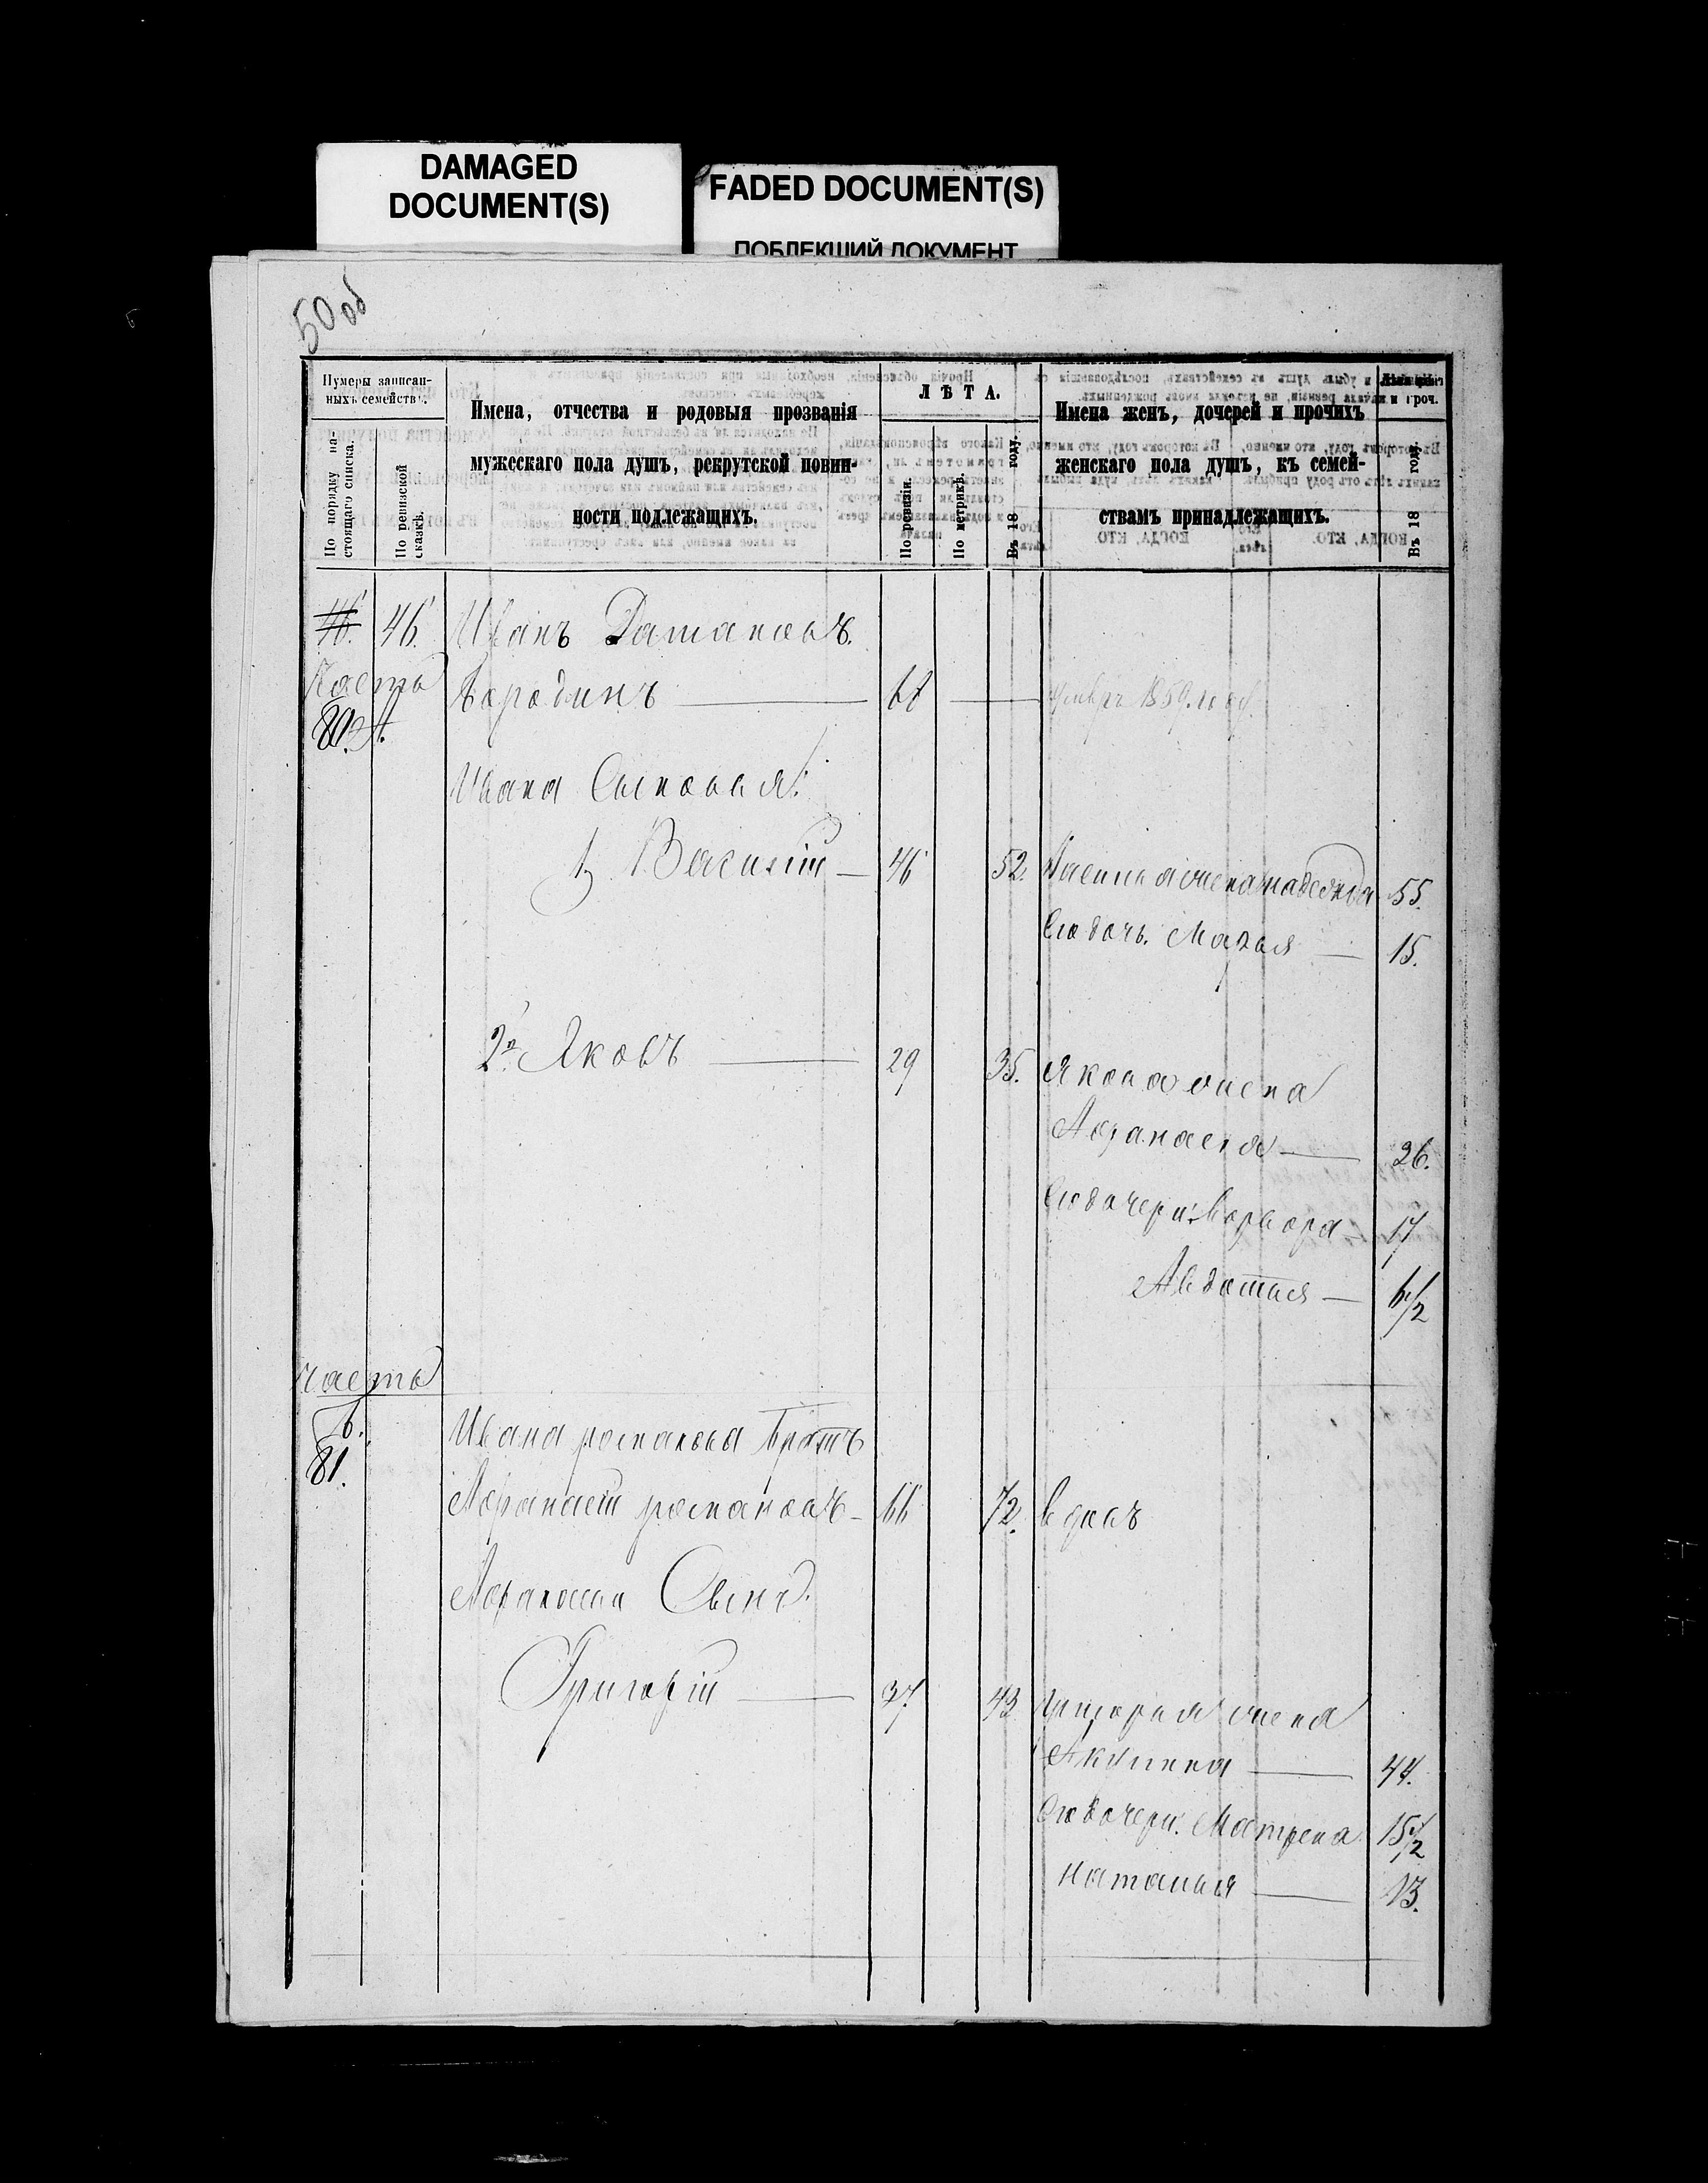 DAMAGED
DOCUMENT(S)
FADED DOCUMENT(S)
ПОБЛЕКШИЙ ДОКУМЕНТ
50 об
Нумеры записан-
ныхъ семействъ.
По порядку на-
стоящаго списка.
По ревизской
сказкѣ.
Имена, отчества и родовыя прозванія
мужескаго пола душъ, рекрутской повин-
ности подлежащихъ.
ЛѢТА.
По ревизіи.
По метрикѣ.
Въ 18 году.
Имена женъ, дочерей и прочихъ
женскаго пола душъ, къ семей-
ствамъ принадлежащихъ.
Въ 18 году.
46. 46. Иванъ
Часть Бородинъ
80. А. умеръ 1859 году
Ивана Сыновья:
1й Василій 46 52. жена Надежда 55.
Его дочь. Марья 15.
2й Яковъ 29 35. Якова жена
Афанасья 26.
Его дочери: Варвара 17
Авдотья 6 1/2
часть
В.
81.
Ивана романова братъ
Афанасій романовъ 66 72. вдовъ
Афанасья Сынъ
Григорій 37 43 Григорья жена
Акулина 44.
Его дочери. Матрена 15 1/2
Наталья 13.